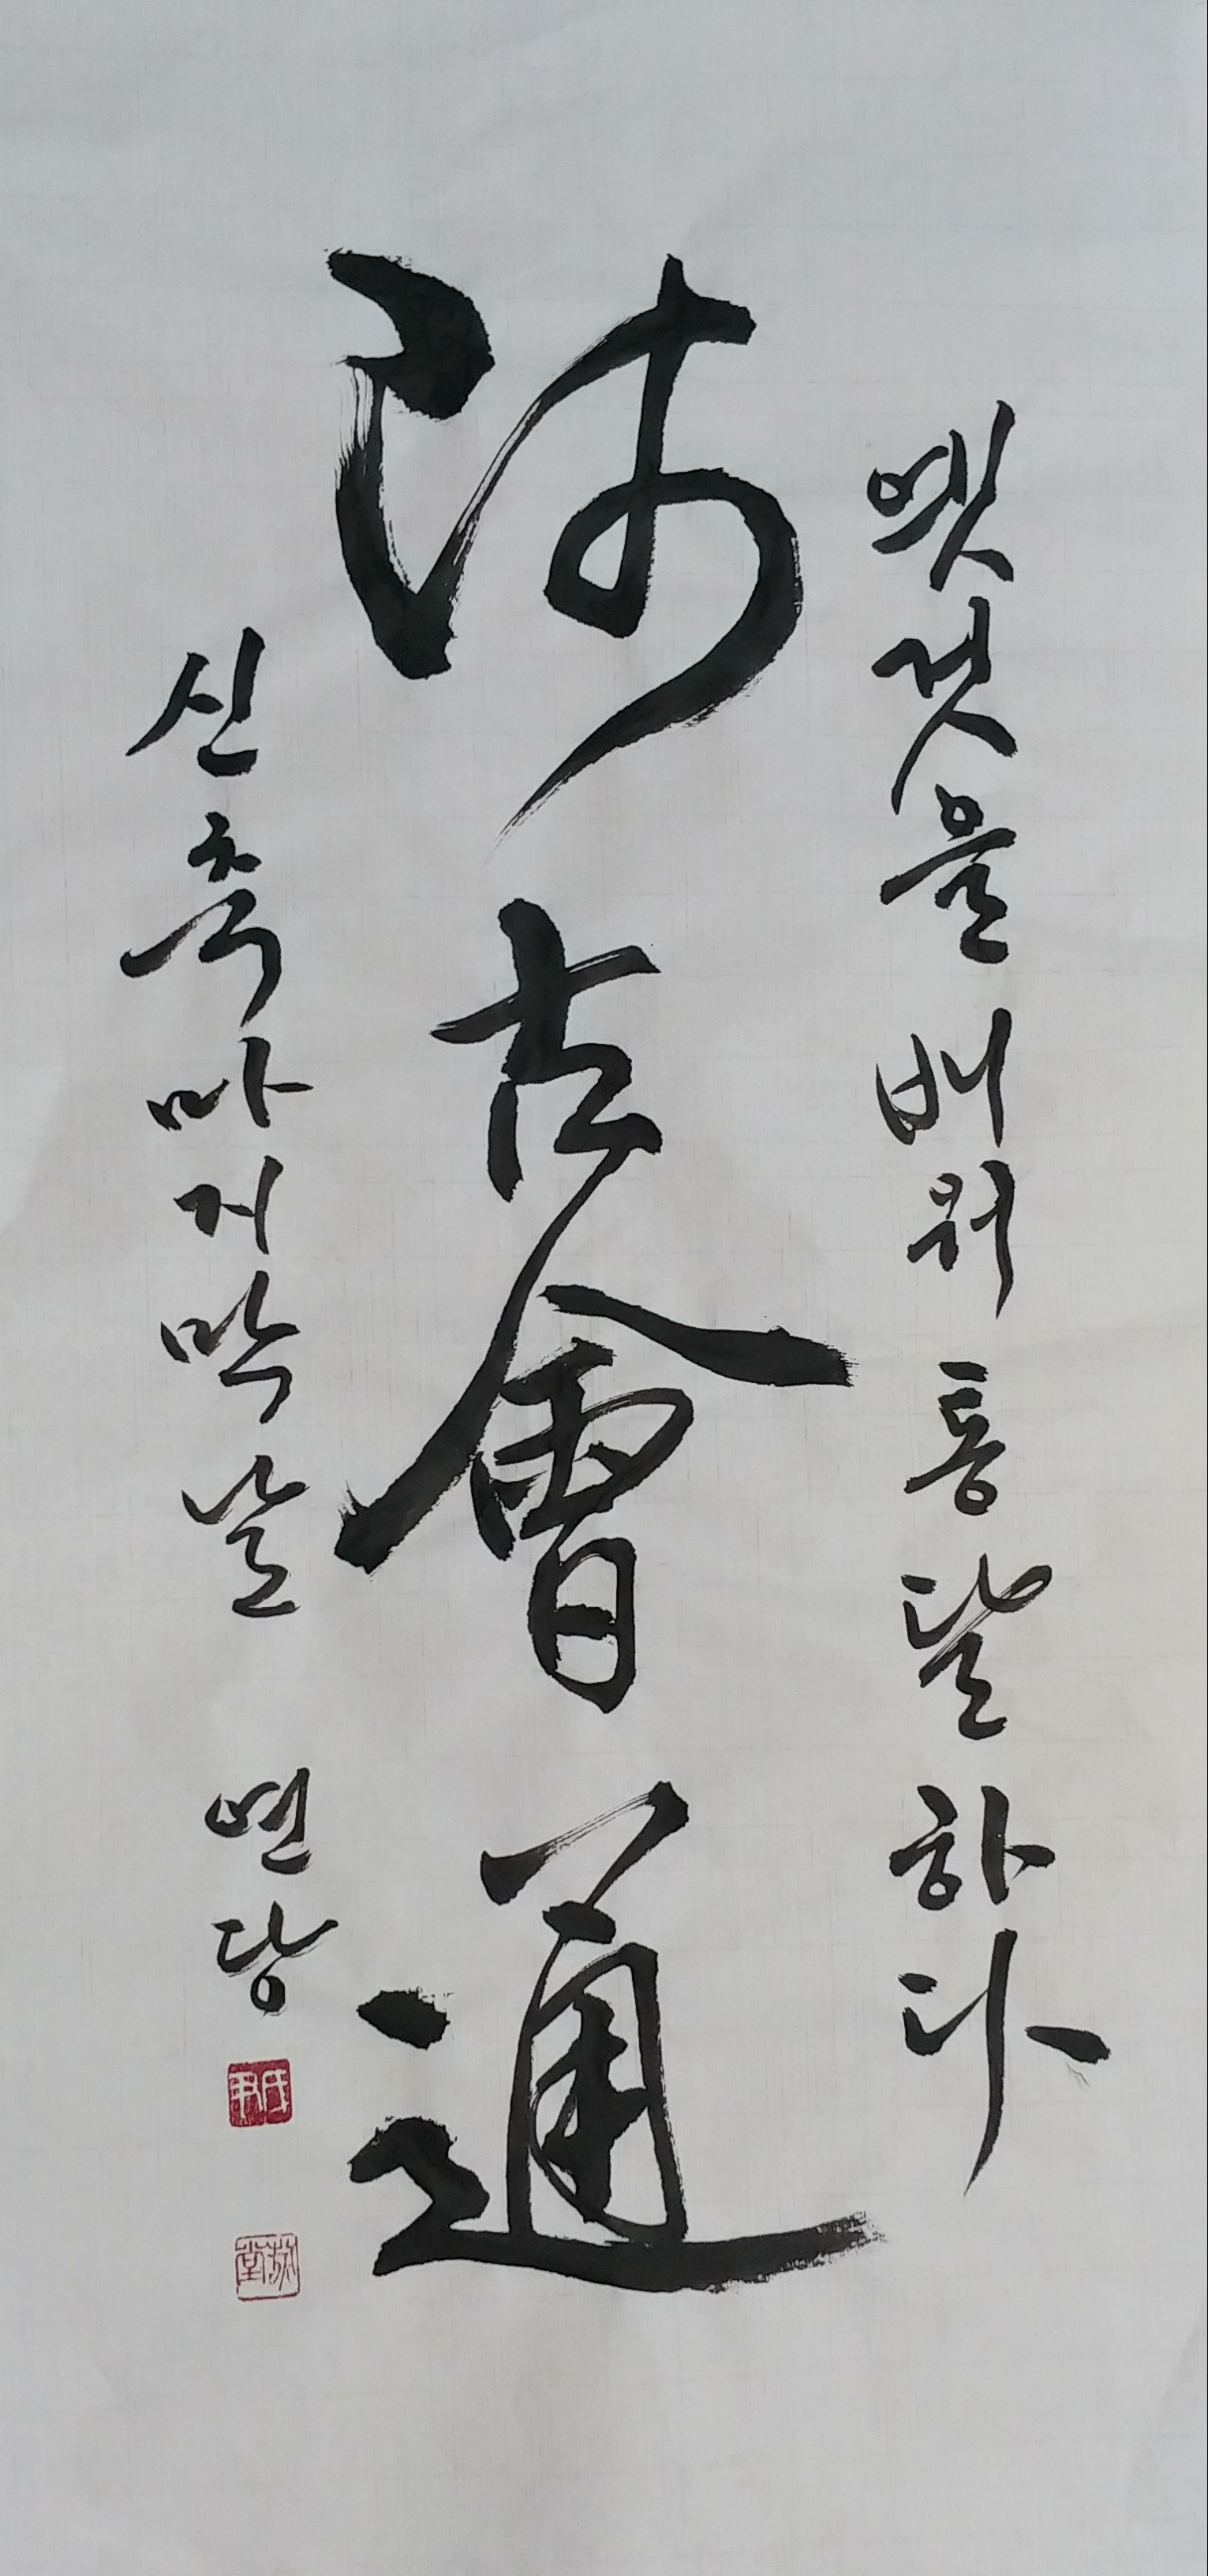 옛것을 배워 통달하다
師古會通
신축 마지막 날 연당
尹氏